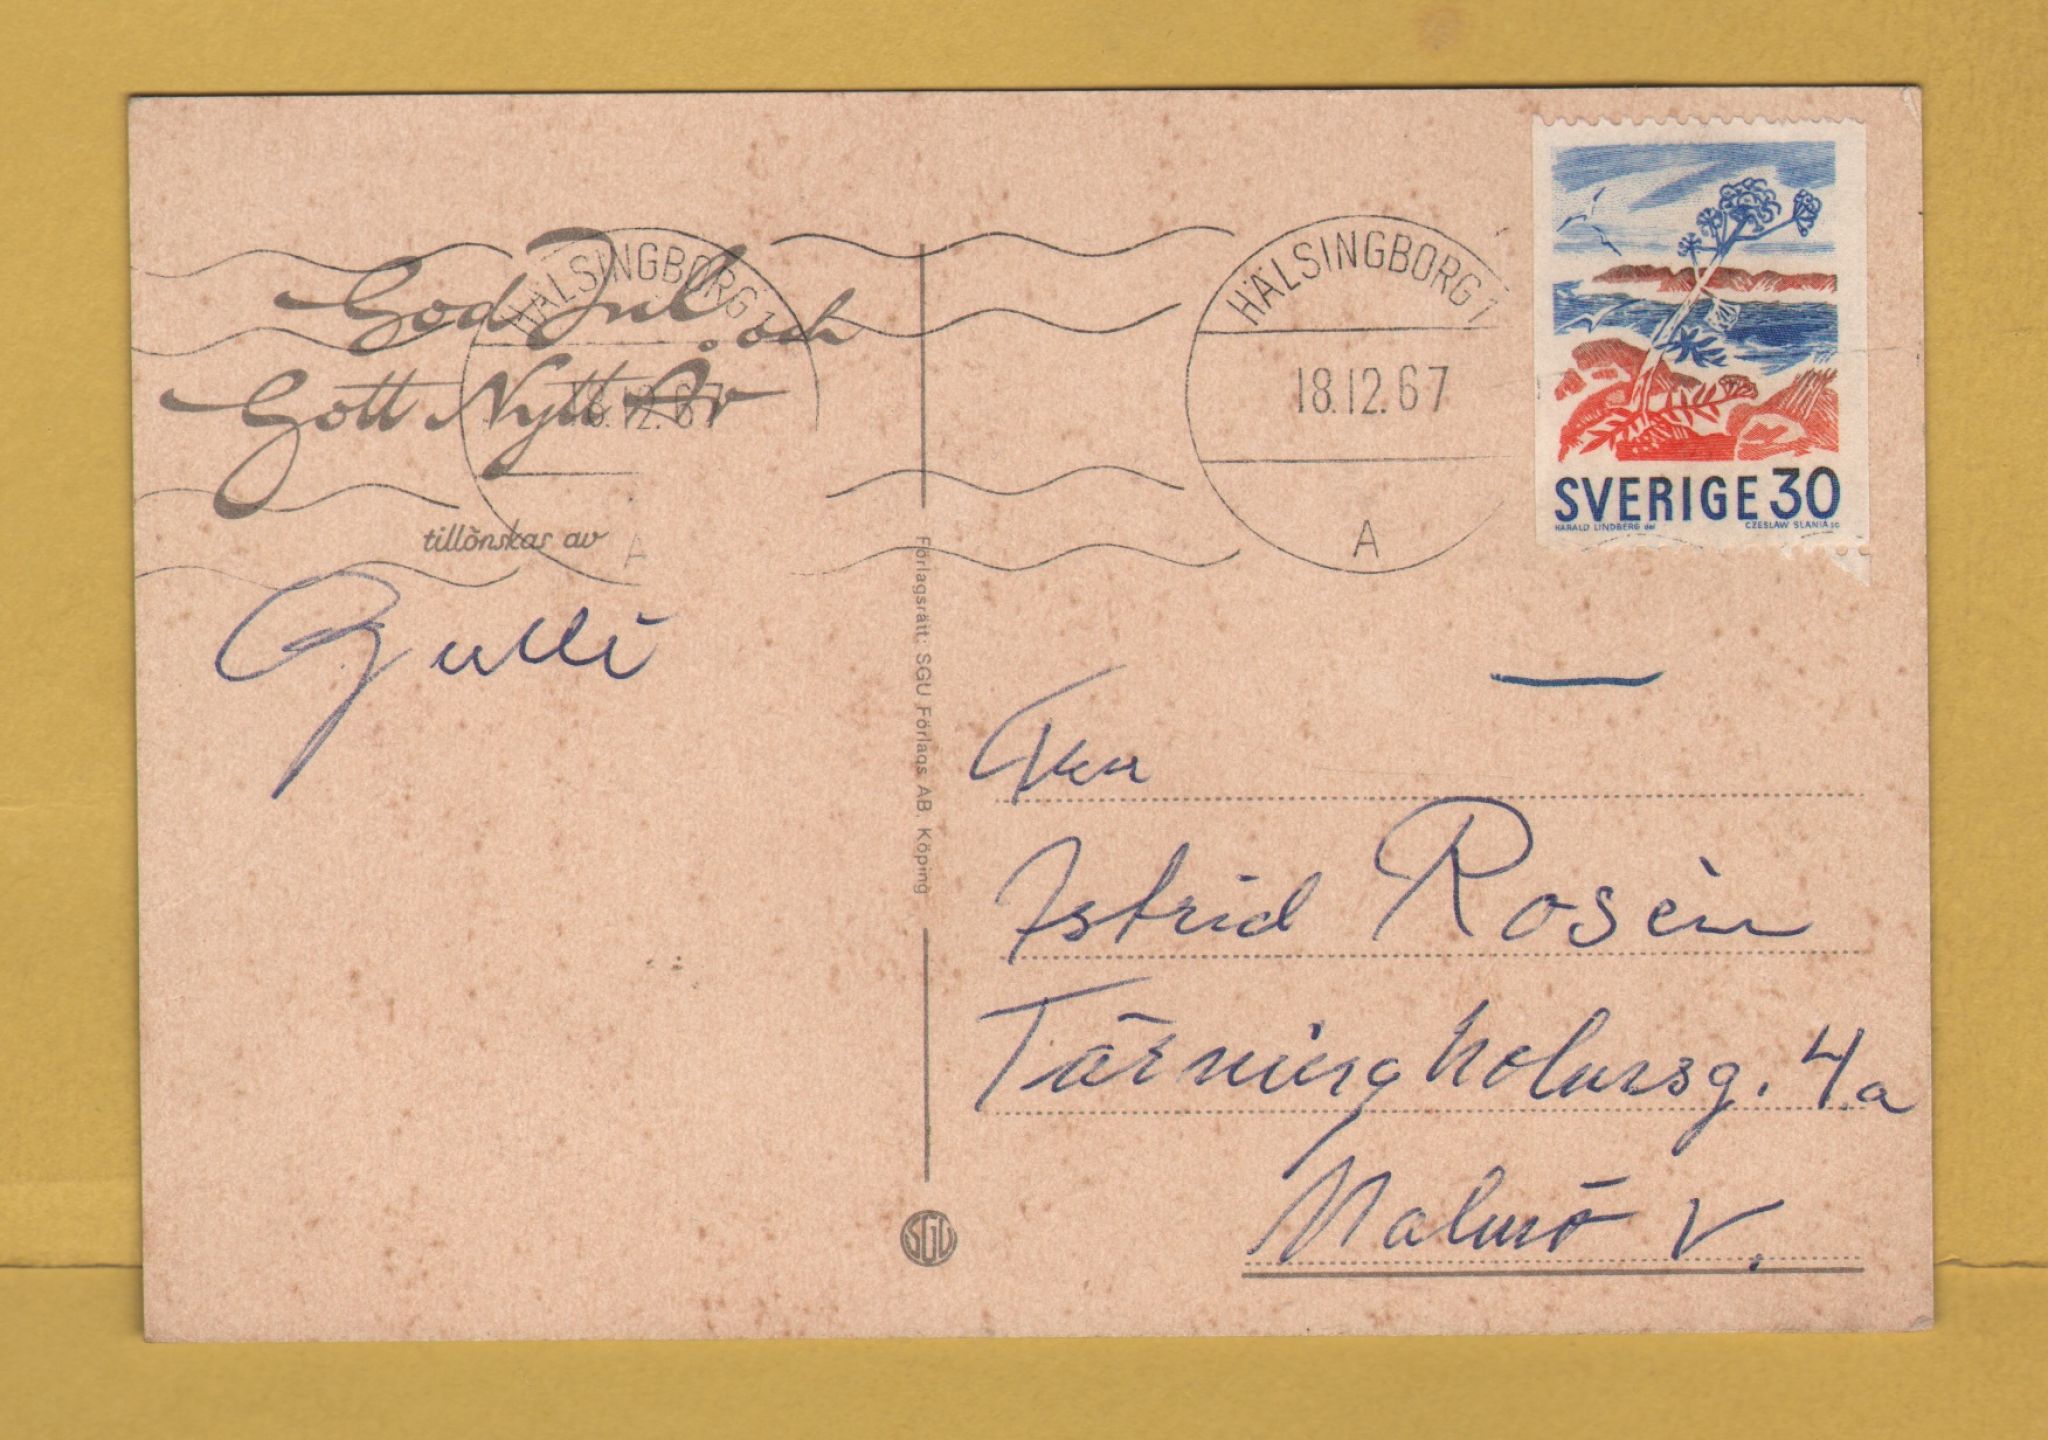 God Jul och
Gott Nytt År
tillönskas av
Gulli
HÄLSINGBORG 1
18.12.67
A
HÄLSINGBORG 1
18.12.67
A
SVERIGE 30
HARALD LINDBERG del CZESLAW SLANIA sc
Förlagsrätt: SGU Förlags AB, Köping
SGU
Fru
Astrid Rosèn
Tärningholmsg. 4a
Malmö V.